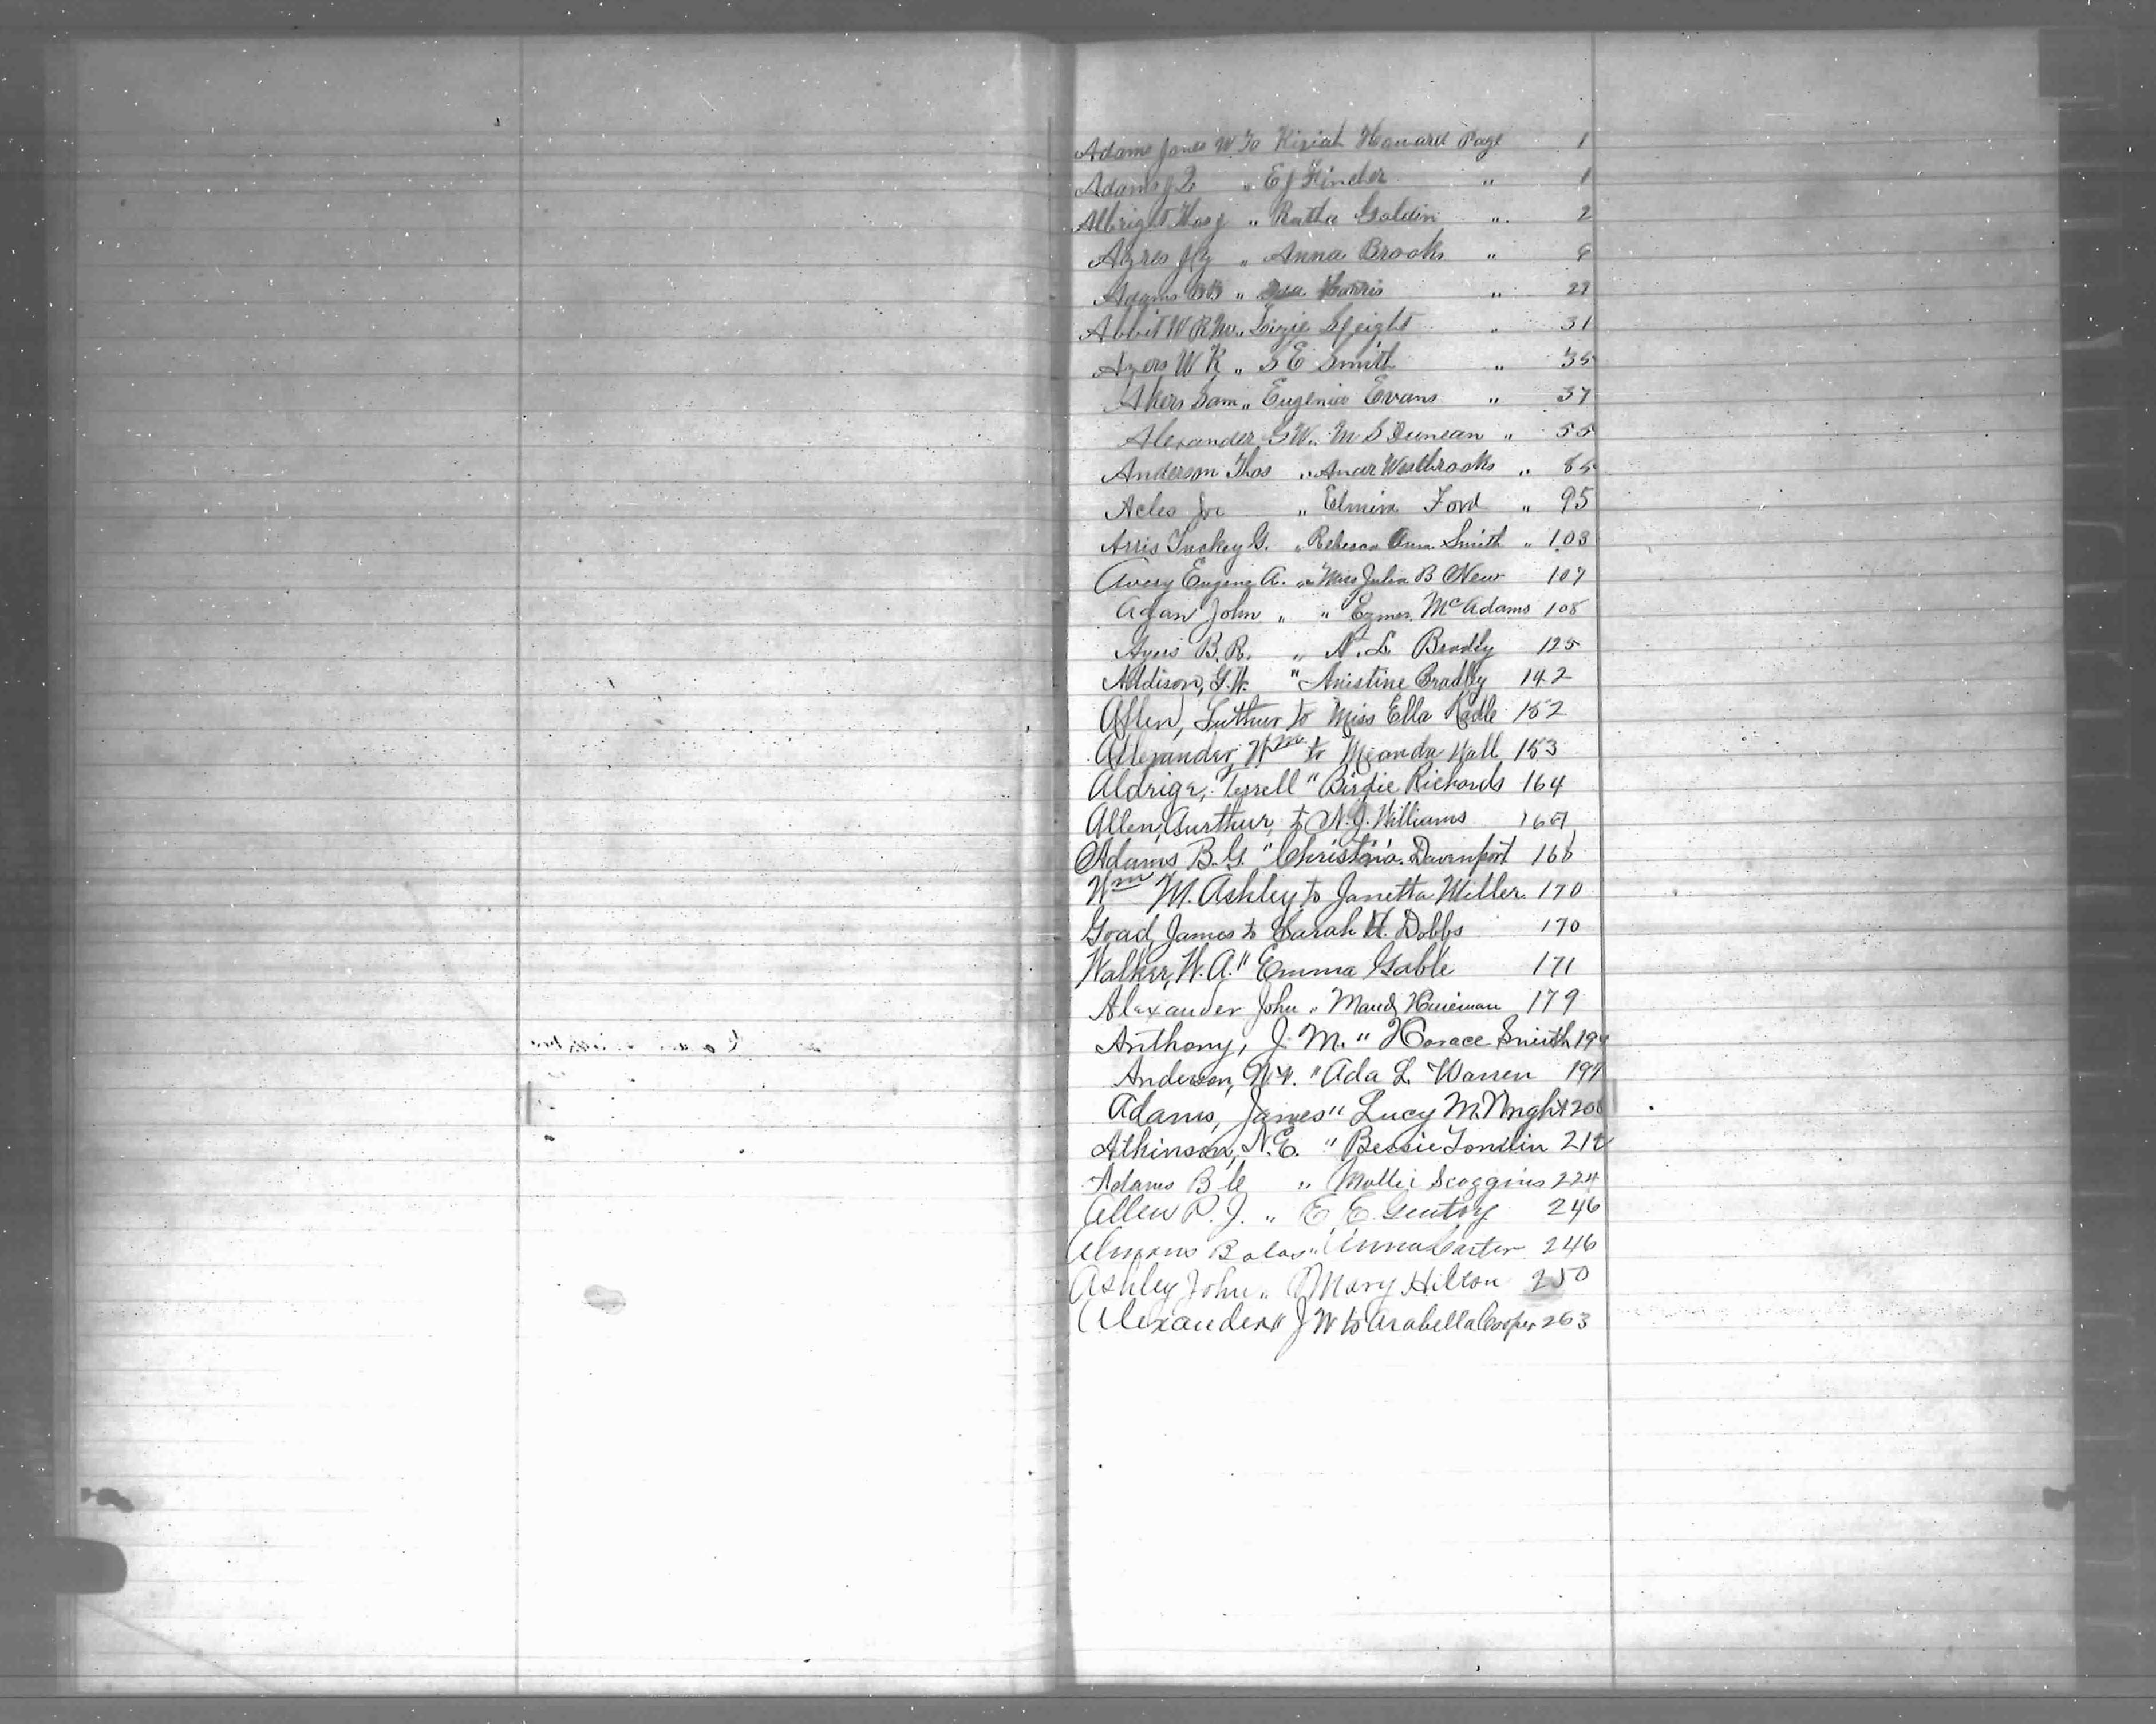 Adams James W To Kisiah Howard Page 1
Adams J Q " E J Kincher " 1
Albright Thos J " Ratha Goldin " 2
Ayres J G " Anna Brooks " 6
Adams B B " Harris " 29
Abbit W R " Lizzie Speight " 31
Ayers W R " S E Smith " 35
Akers Sam " Eugenia Evans " 37
Alexander G W " M S Duncan " 55
Anderson Thos " Westbrooks " 85
Acles Joe " Elmira Ford " 95
Arris Tuckey G. " Rebecca Ann Smith " 103
Avery Eugene A. " Miss Julia B New 107
Agan John " " McAdams 108
Ayers B. R. " N. L Bradly 125
Addison, G. W. " Anistine Bradley 142
Allen, Luthur to Miss Ella Kadle 152
Allexander, Wm to Meanda Hall 153
Aldrige, Tyrell " Birdie Richards 164
Allen, Aurthur, to N. J. Williams 167
Adams B. G. " Christina Davenport 168
Wm M. Ashley to Janetta Miller 170
Goad, James to Sarah H. Dobbs 170
Walker, W. A. " Emma Gable 171
Alexander John " Maud 179
Anthony, J. M. " Horace Smith
Anderson, W. W. " Ada L. Warren 197
Adams, James " Lucy M.
Atkinson, N. E. " Bessie Tomlin
Adams B C " Mollie Scoggins 224
Allen P. J. " E. E. Gentry 246
" Anna Carter 246
Ashley John " Mary Hilton 250
Alexander " J W to Arabella Cooper 263